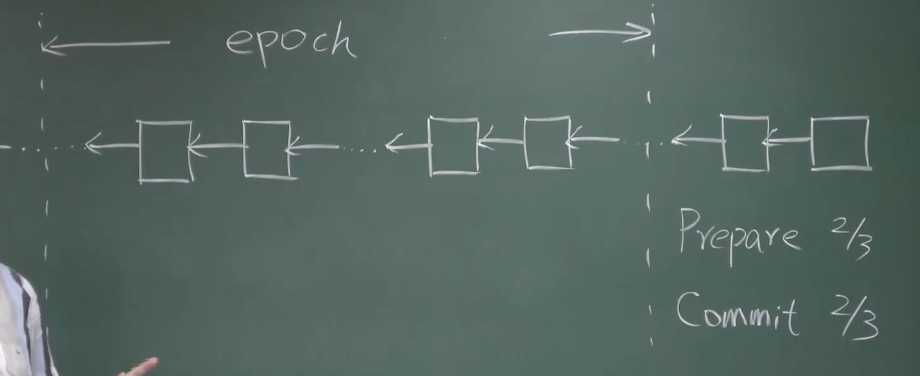 epoch
Prepare 2/3
Commit 2/3